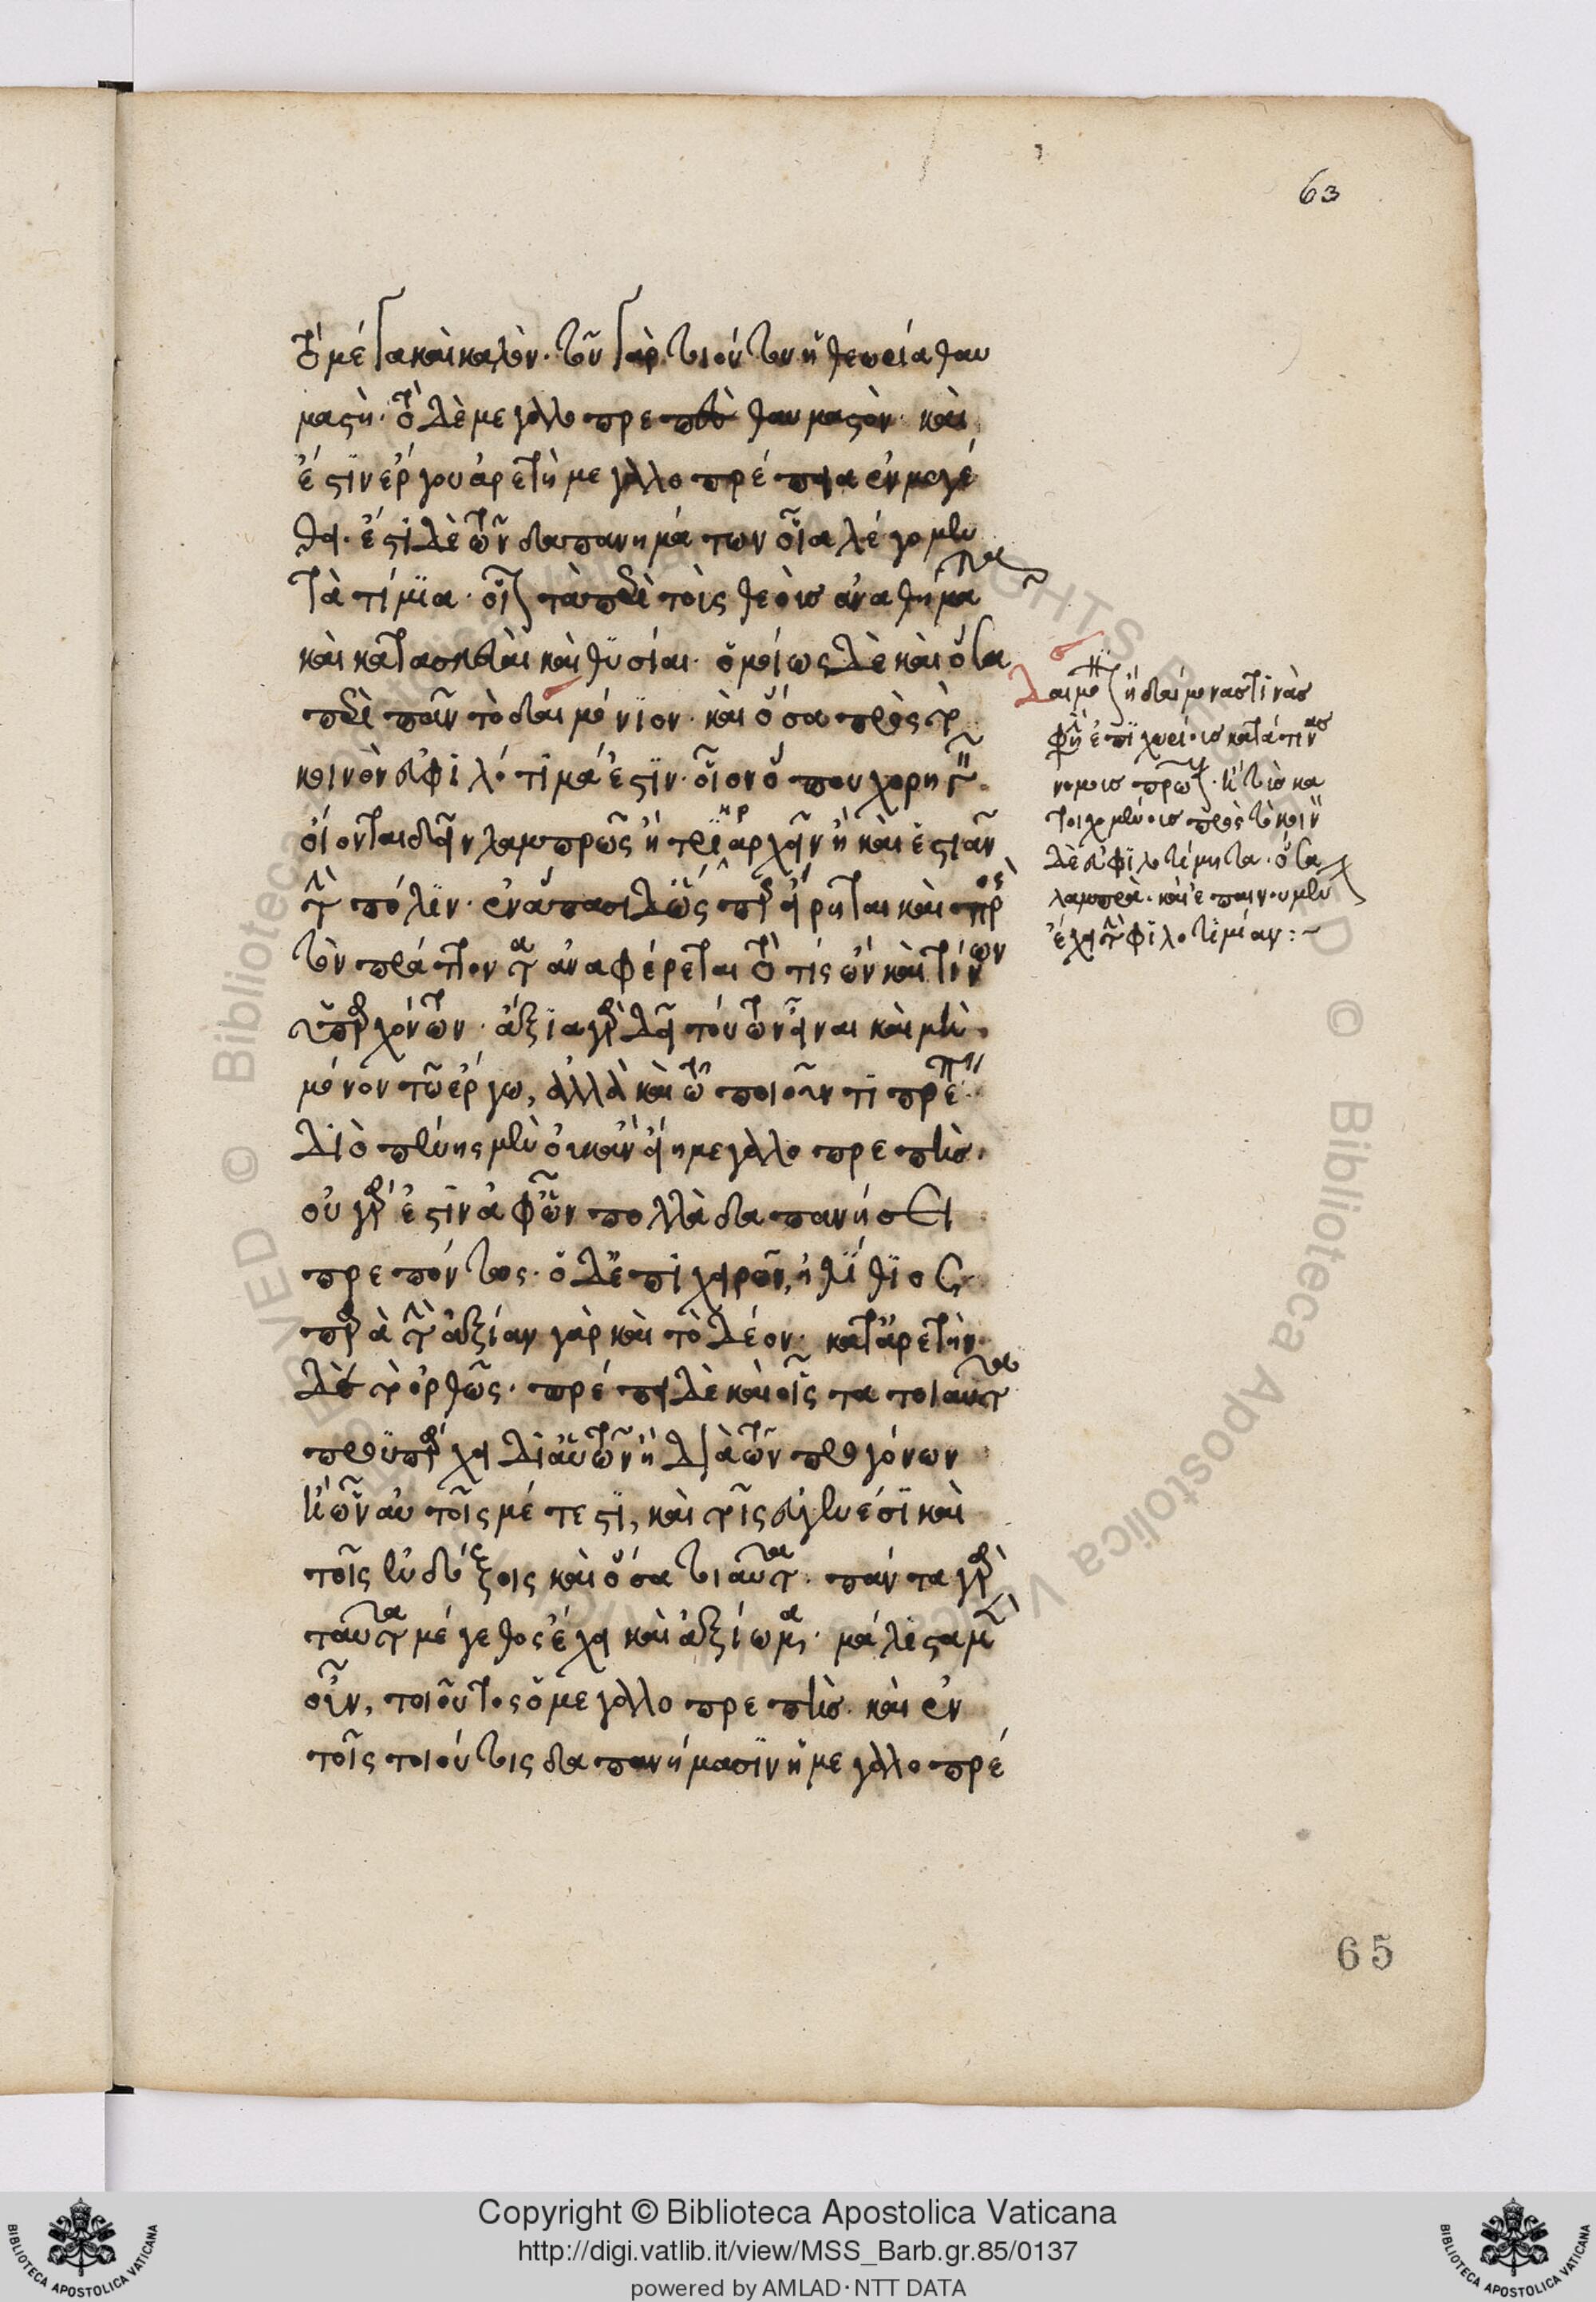 63
τὸ μέγα καὶ καλόν· τοῦ γὰρ τοιούτου ἡ θεωρία θαυ
μαστή· τὸ δὲ μεγαλοπρεπὲς θαυμαστόν· καὶ
ἔστιν ἔργου ἀρετὴ μεγαλοπρέπεια ἐν μεγέ
θει· ἔστι δὲ τῶν δαπανημάτων οἷα λέγομεν
τὰ τίμια· οἷον τὰ περὶ τοὺς θεοὺς ἀναθήματα
καὶ κατασκευαὶ καὶ θυσίαι· ὁμοίως δὲ καὶ ὅσα
περὶ πᾶν τὸ δαιμόνιον· καὶ ὅσα πρὸς τὸ
κοινὸν εὐφιλότιμά ἐστιν· οἷον ὅπου χορηγεῖν
οἴονται δεῖν λαμπρῶς ἢ τριηραρχεῖν ἢ καὶ ἑστιᾶν
τὴν πόλιν· ἐν ἅπασι δ' ὥσπερ εἴρηται καὶ πρὸς
τὸν πράττοντα ἀναφέρεται τὸ τίς ὢν καὶ τίνων
ὑπαρχόντων· ἄξια γὰρ δεῖ τούτων εἶναι καὶ μὴ
μόνον τῷ ἔργω, ἀλλὰ καὶ τῷ ποιοῦντι πρέπειν
διὸ πένης μὲν οὐκ ἂν εἴη μεγαλοπρεπής·
οὐ γάρ ἐστιν ἀφ' ὧν πολλὰ δαπανήσει
πρεπόντως· ὁ δ' ἐπιχειρῶν, ἠλίθιος
παρὰ τὴν ἀξίαν γὰρ καὶ τὸ δέον· κατ' ἀρετὴν
δὲ τὸ ὀρθῶς· πρέπει δὲ καὶ οἷς τὰ τοιαῦτα
προϋπάρχει δι' αὑτῶν ἢ διὰ τῶν προγόνων
ἢ ὧν αὐτοῖς μέτεστι, καὶ τοῖς εὐγενέσι καὶ
τοῖς ἐνδόξοις καὶ ὅσα τοιαῦτα· πάντα γὰρ
ταῦτα μέγεθος ἔχει καὶ ἀξίωμα· μάλιστα μὲν
οὖν, τοιοῦτος ὁ μεγαλοπρεπής· καὶ ἐν
τοῖς τοιούτοις δαπανήμασιν ἡ μεγαλοπρέ
ἢ δαίμονας τινὰς
ἐπιχωρίοις κατά τινας
νόμοις ἢ τοῖς κα
τοιχομένοις πρὸς τὸ κοινὸν
δὲ εὐφιλοτίμητα· ὅσα
λαμπρὰ· καὶ ἐπαινουμένην
ἔχει τὴν φιλοτιμίαν:~
65
Copyright © Biblioteca Apostolica Vaticana
http://digi.vatlib.it/view/MSS_Barb.gr.85/0137
powered by AMLAD·NTT DATA